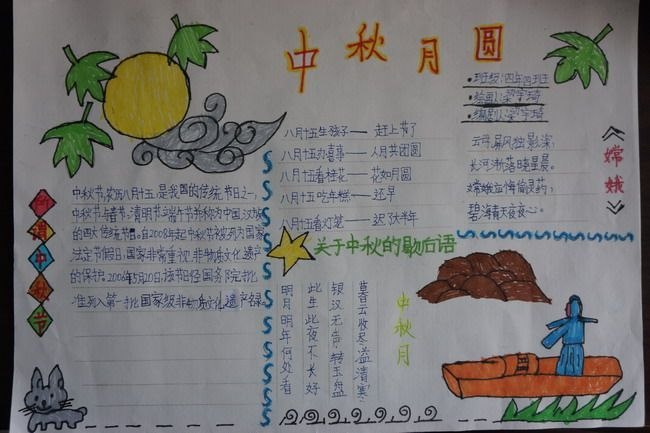 中秋月圆
班级:四年四班
绘画:梁宇琦
编剧:梁宇琦
所谓中秋节
中秋节,农历八月十五,是我国的传统节日之一,
中秋节与春节、清明节、端午节并称为中国汉族
的四大传统节日。自2008年起中秋节被列为国家
法定节假日,国家非常重视非物质文化遗产
的保护,2006年5月20日,该节日经国务院批
准列入第一批国家级非物质文化遗产名录。
八月十五生孩子——赶上节了
八月十五办喜事——人月共团圆
八月十五看桂花——花好月圆
八月十五吃年糕——还早
八月十五看灯笼——迟了半年
关于中秋的歇后语
《嫦娥》
云母屏风烛影深,
长河渐落晓星晨。
嫦娥应悔偷灵药,
碧海青天夜夜心。
中秋月
暮云收尽溢清寒
银汉无声转玉盘
此生此夜不长好
明月明年何处看